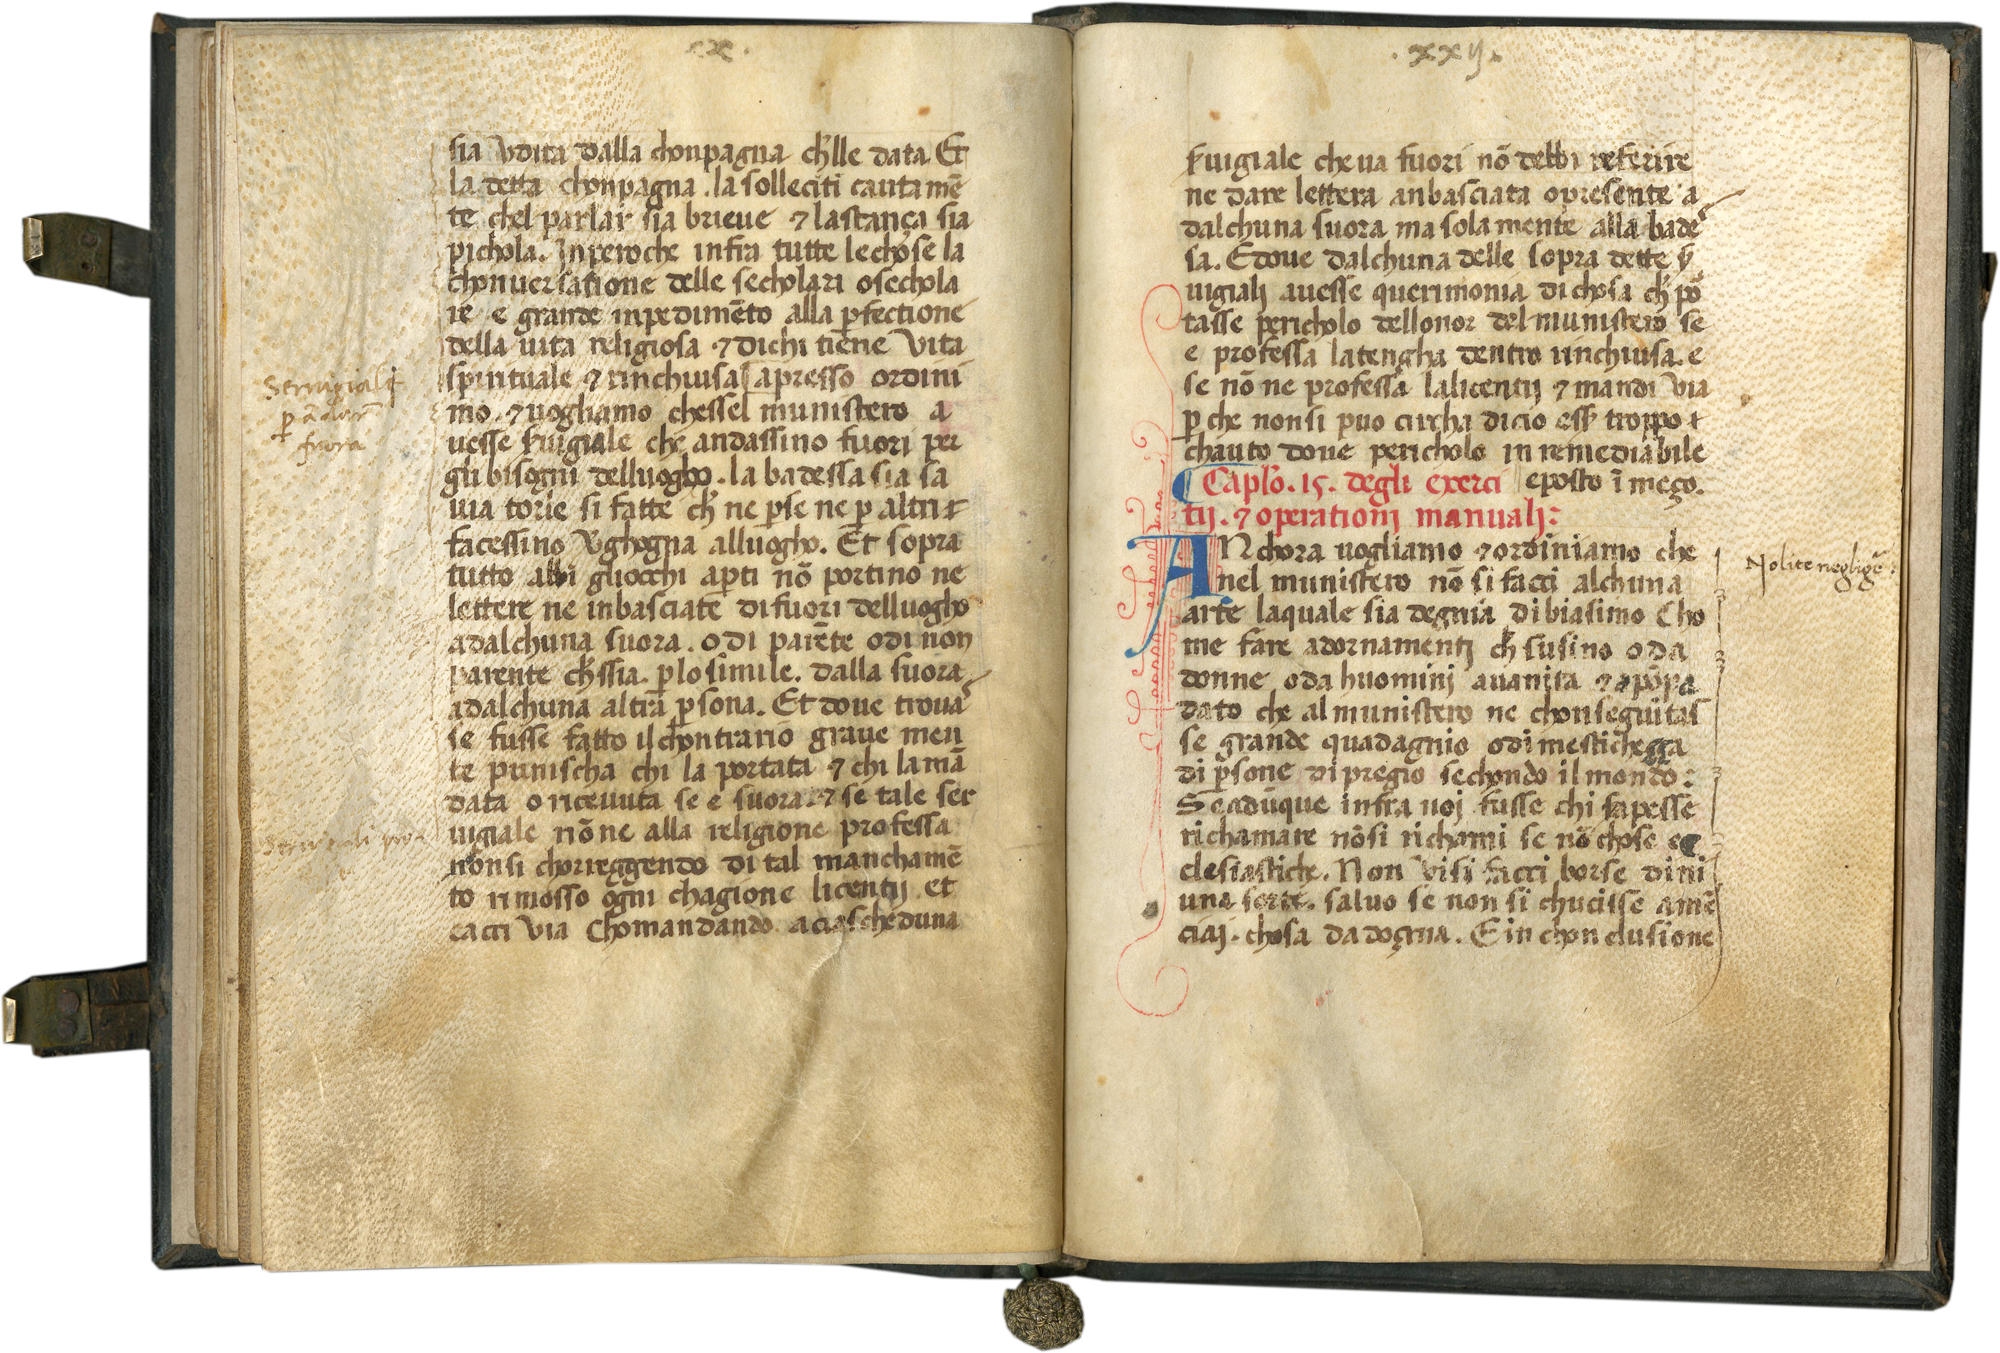 sia vdita dalla chonpagna ch̄lle data Et
la detta chonpagna . la solleciti cautamē
te chel parlar sia brieue ⁊ lastança sia
pichola. Inperoche infra tutte lechose la
chonuersatione delle secholari osechola
re e grande inpedimēto alla ꝑfectione
della uita religiosa ⁊ dichi tiene vita
spirituale ⁊ rinchiusa apresso ordini
mo. ⁊ uogliamo chessel munistero a
uesse seruigiale che andassino fuori per
gli bisogni delluogho . la badessa sia sa
uia torle si fatte ch̄ ne ꝑse ne ꝑ altri
facessino vghogna alluogho. Et sopra
tutto abbi gliocchi aꝑti nō portino ne
lettere ne inbasciate difuori delluogho
adalchuna suora. odi parēte odi non
parente ch̄ssia. ꝑlo simile. dalla suora
adalchuna altra ꝑsona. Et doue troua
se fusse fatto il chontrario graue men
te punischa chi la portata ⁊ chi lamā
data o riceuuta se e suora. ⁊ se tale ser
uigiale nōne alla religione professa
nonsi chorreggendo di tal manchamē
to rimosso ogni chagione licentij et
cacci via Chomandando aciascheduna
Seruigiali
ꝑ ādar
fuora
.xxij.
seruigiale cheua fuori nō debbi referire
ne dare lettera anbasciata opresente a
dalchuna suora ma solamente alla bade
sa. Edoue dalchuna delle sopra dette
uigialj auesse querimonia di chosa ch̄ po
tasse pericholo dellonor del munistero se
e professa latengha dentro rinchiusa. e
se nō ne professa lalicentij ⁊ mandi via
ꝑche nonsi puo circha dicio ess̄ troppo
chauto doue pericholo inremediabile
eposto ī meço.
Caplo. 15. degli exerci
tij. ⁊ operationj manualj:
ANchora uogliamo ⁊ ordiniamo che
nel munistero nō si facci alchuna
arte laquale sia degnia dibiasimo Cho
me fare adornamentj ch̄ susino oda
donne oda huominj auanita ⁊ apōpa
dato che al munistero ne chonseguitas
se grande guadagnio odimestichezza
di ꝑsone di pregio sechondo il mondo:
Se adūque infra uoj fusse chi sapesse
richamare nōsi richami se nō chose ec
clesiastiche. Non visi facci borse dini
una sorte. saluo se non si chucisse
chosa da dogna. E in chonclusione
Nolite negligē